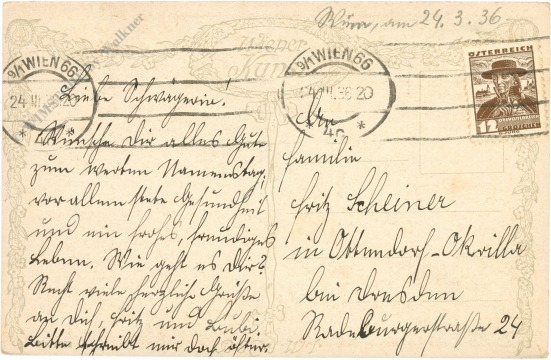 Wien, am 24.3.36
Wiener
Kunst
9/1 WIEN 66
24 III
9/1 WIEN 66
24 III 36 20
* 4c *
ÖSTERREICH
12
GROSCHEN
Liebe Schwägerin!
Wünsche Dir alles Gute
zum werten Namenstag,
vor allem stete Gesundheit
und ein frohes, freudiges
Leben. Wie geht es Dir?
Recht viele herzliche Grüße
an Dich, Fritz und Bubi.
Bitte schreibt mir doch öfter.
An
Familie
Fritz Scheiner
in Ottendorf-Okrilla
bei Dresden
Radeburgerstraße 24